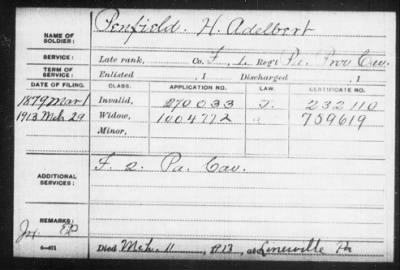 NAME OF SOLDIER: Penfield. H. Adelbert
SERVICE: Late rank, Co. F, 1. Reg't Pa. Prov Cav.
TERM OF SERVICE: Enlisted , 1 Discharged , 1
DATE OF FILING. CLASS. APPLICATION NO. LAW. CERTIFICATE NO.
1879 Mar 1 Invalid, 270 033 232 110
1913 Mch. 29 Widow, 1004772 759619
Minor,
ADDITIONAL SERVICES: F. 2. Pa. Cav.
REMARKS:
6-471
Died Mch. 11, 1913, at Linesville Pa